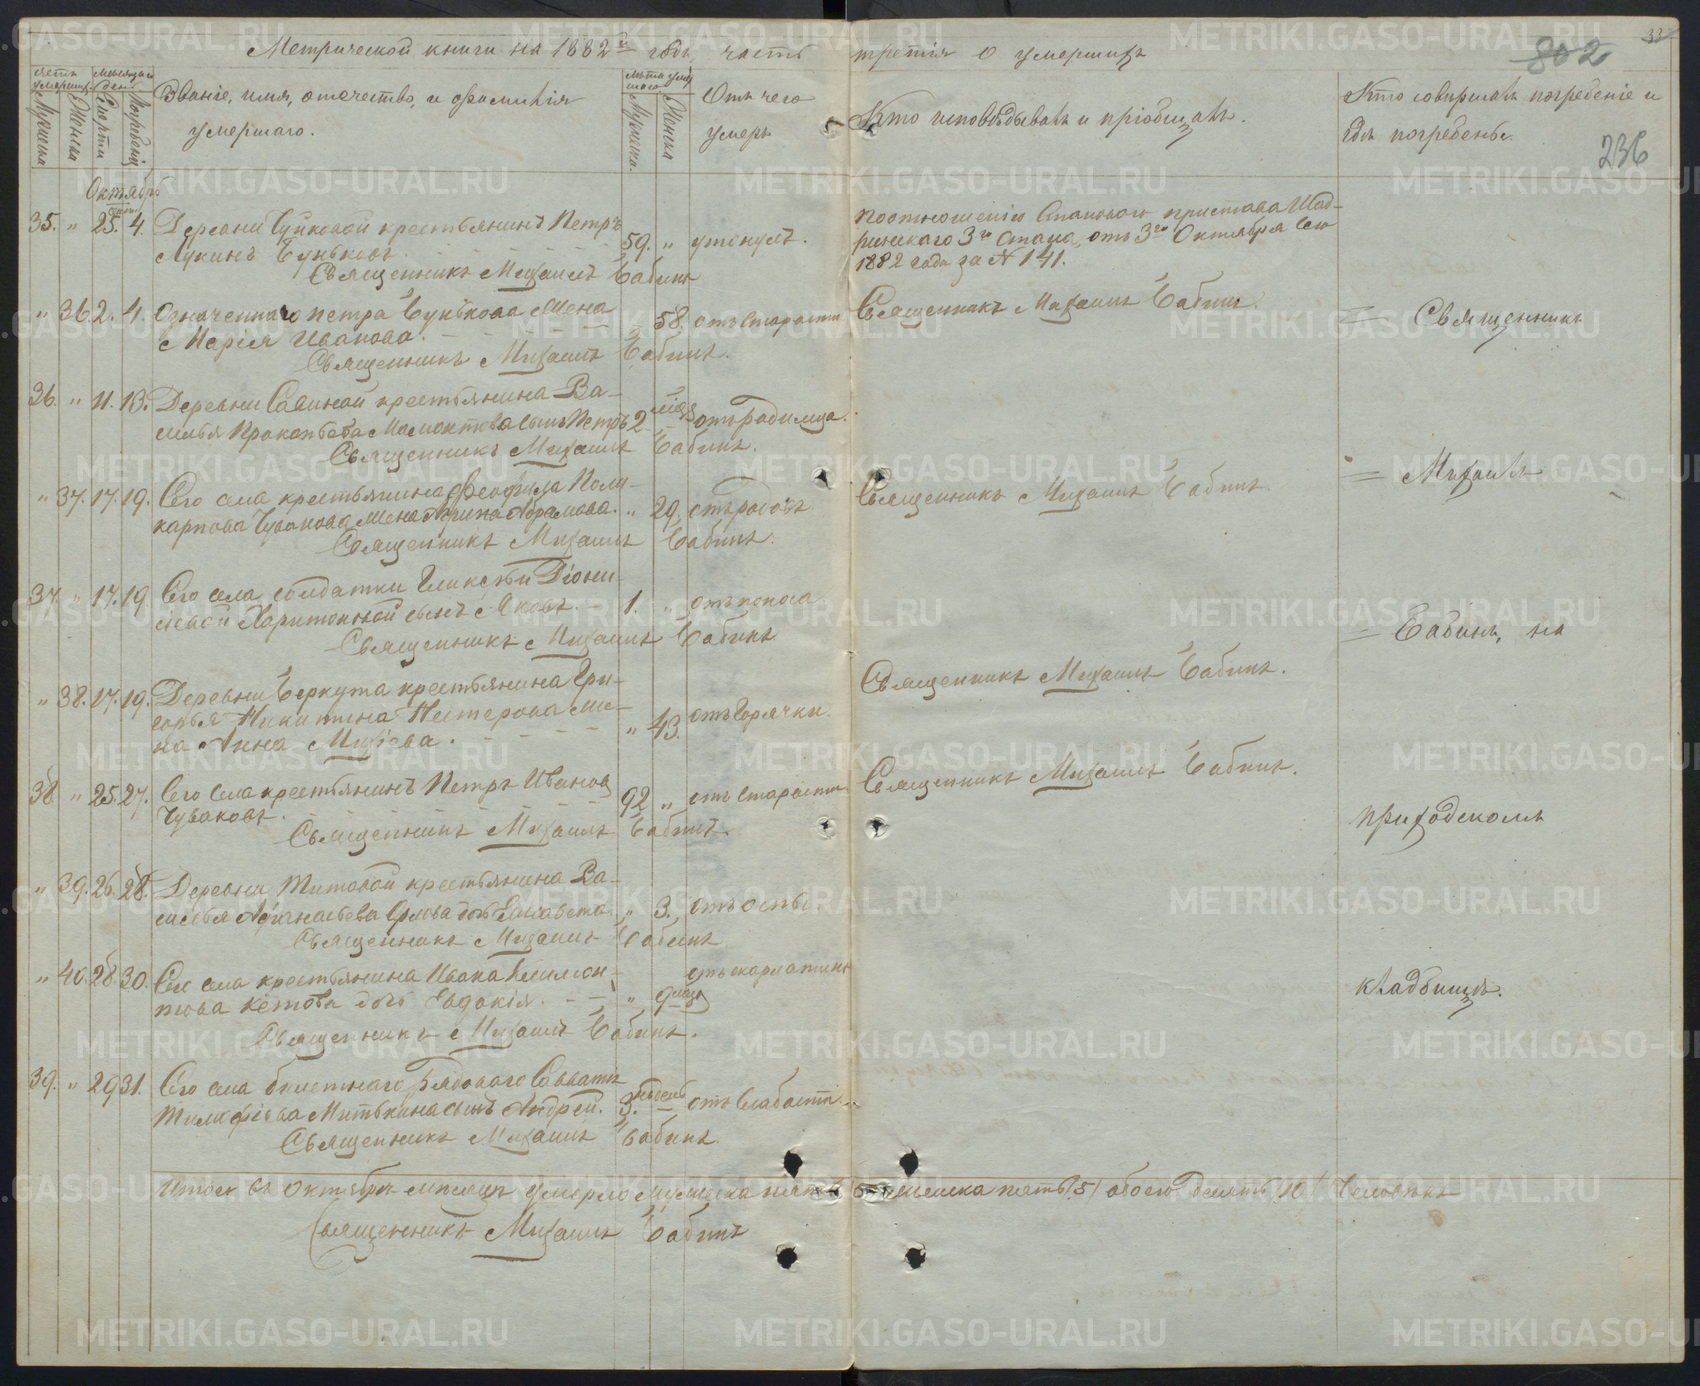 Метрической книги на 1882й годъ, часть третія о умершихъ
802
33
236
Мѣсяцъ и день
Мужеска
Женска
Смерти
Погребенія
Званіе, имя, отечество, и фамилія
умершаго.
Мужеска.
Женска
Отъ чего
умеръ
Кто исповѣдывалъ и пріобщалъ.
Кто совершалъ погребеніе и
гдѣ погребены.
Октябрь
35. " 25. 4. Деревни крестьянинъ Петръ
Лукинъ Буньковъ. 59. " утонулъ.
Священникъ Михаилъ Бабинъ
По отношенію Становаго пристава Шад-
ринскаго 3го стана, отъ 3го Октября сего
1882 года за № 141.
" 36. 2. 4. Означеннаго Петра Бунькова жена
Марія Иванова. " 58. отъ старости
Священникъ Михаилъ Бабинъ.
Священникъ Михаилъ Бабинъ.
= Священникъ
36. " 11. 13. Деревни Савиной крестьянина Ва-
силья сынъ Петръ 2 мѣс. отъ родимца.
Священникъ Михаилъ Бабинъ.
= Михаилъ
" 37. 17. 19. Сего села крестьянина Феофила Поли-
карпова Чувакова жена Абрамова. " 29. отъ родовъ
Священникъ Михаилъ Бабинъ.
Священникъ Михаилъ Бабинъ.
37. " 17. 19. Сего села солдатки Гликеріи Діони-
сіевой Харитоновой сынъ Яковъ. 1. " отъ поноса
Священникъ Михаилъ Бабинъ
= Бабинъ, на
Священникъ Михаилъ Бабинъ.
" 38. 17. 19. Деревни Беркута крестьянина Гри-
горья Никитина Нестерова же-
на Анна Михѣева. " 43. отъ горячки
38. " 25. 27. Сего села крестьянинъ Петръ Ивановъ
Чуваковъ. 92 " отъ старости
Священникъ Михаилъ Бабинъ.
Священникъ Михаилъ Бабинъ.
приходскомъ
" 39. 26. 28. Деревни Титовой крестьянина Ва-
силья Афанасьева Орлова дочь Елисавета. " 3. отъ оспы.
Священникъ Михаилъ Бабинъ
" 40. 28. 30. Сего села крестьянина Ивана
Кетова дочь Евдокія. " 9 мѣс. отъ скарлатины
Священникъ Михаилъ Бабинъ.
кладбищѣ.
39. " 29. 31. Сего села билетнаго рядоваго Савватія
Тимофѣева Митькина сынъ Андрей. 3. недѣль отъ слабости.
Священникъ Михаилъ Бабинъ.
Итого въ октябрѣ мѣсяцѣ умерло мужеска пять 5 женска пять /5/ обоего десять /10/ человѣкъ
Священникъ Михаилъ Бабинъ
METRIKI.GASO-URAL.RU